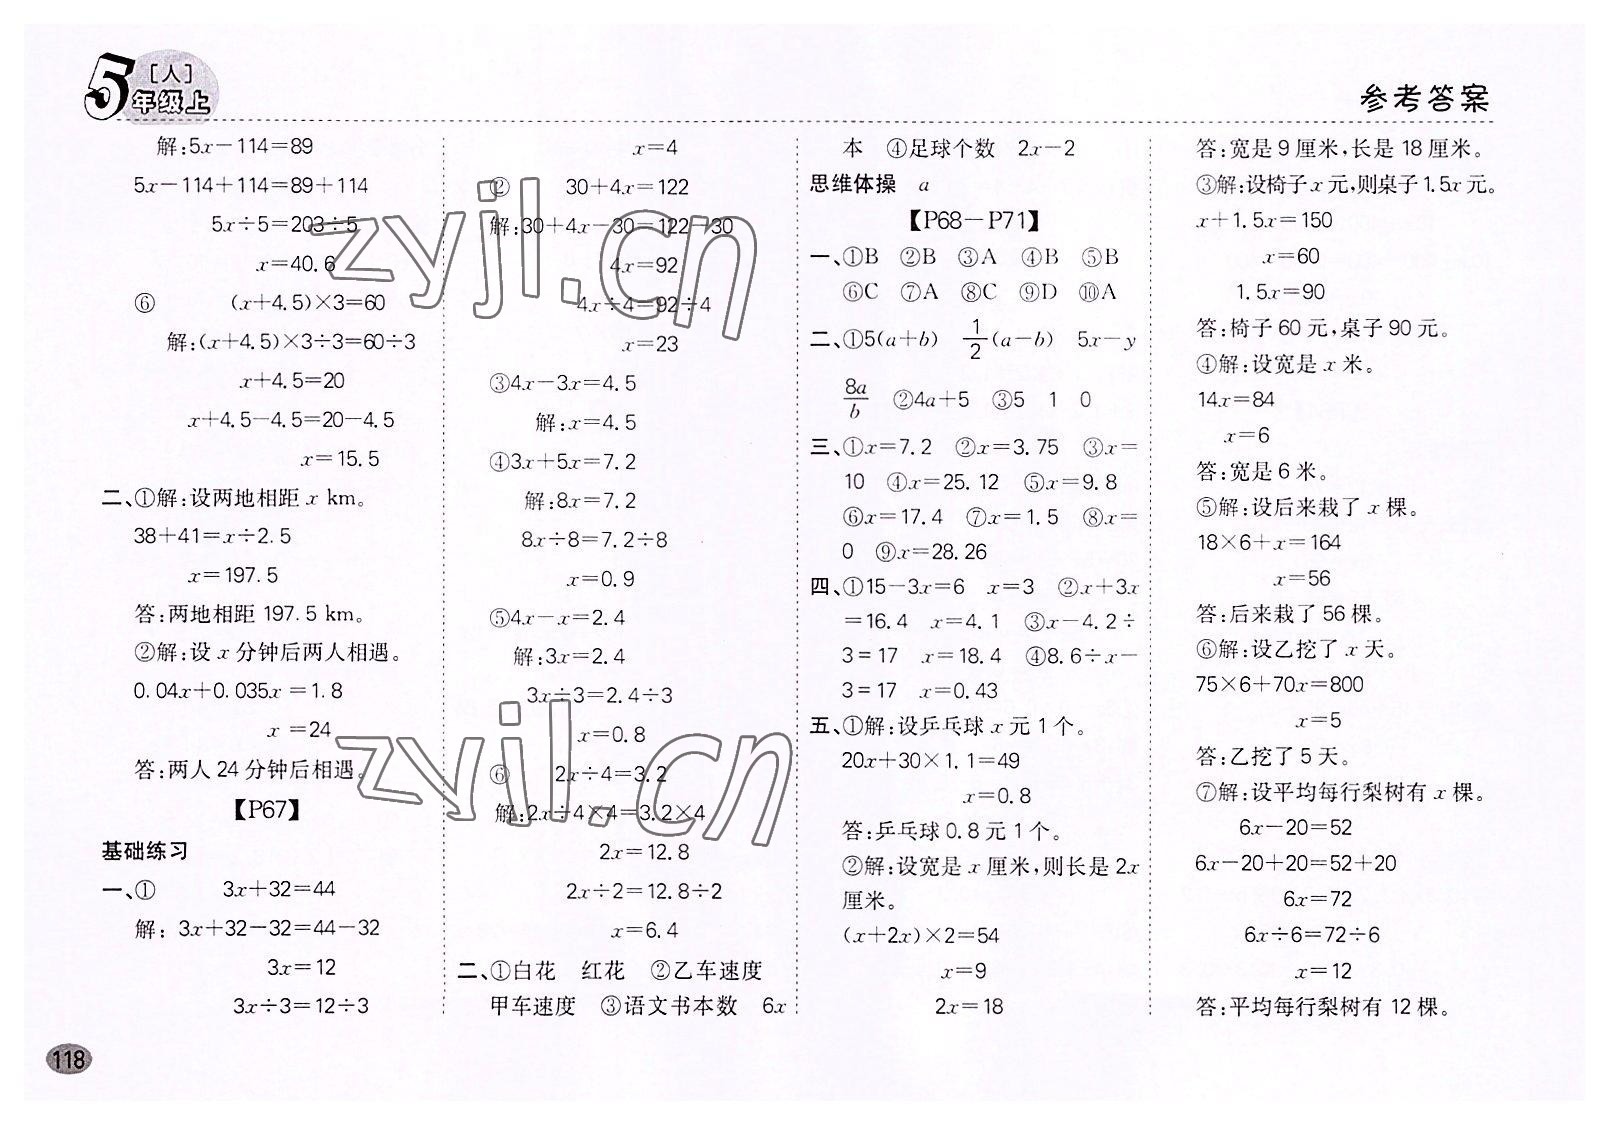 5年级上[人]
参考答案
解:5x－114＝89
5x－114＋114＝89＋114
5x÷5＝203÷5
x＝40.6
⑥ (x＋4.5)×3＝60
解:(x＋4.5)×3÷3＝60÷3
x＋4.5＝20
x＋4.5－4.5＝20－4.5
x＝15.5
二、①解:设两地相距 x km。
38＋41＝x÷2.5
x＝197.5
答:两地相距 197.5 km。
②解:设 x 分钟后两人相遇。
0.04x＋0.035x＝1.8
x＝24
答:两人 24 分钟后相遇。
【P67】
基础练习
一、① 3x＋32＝44
解: 3x＋32－32＝44－32
3x＝12
3x÷3＝12÷3
x＝4
② 30＋4x＝122
解:30＋4x－30＝122－30
4x＝92
4x÷4＝92÷4
x＝23
③4x－3x＝4.5
解:x＝4.5
④3x＋5x＝7.2
解:8x＝7.2
8x÷8＝7.2÷8
x＝0.9
⑤4x－x＝2.4
解:3x＝2.4
3x÷3＝2.4÷3
x＝0.8
⑥ 2x÷4＝3.2
解:2x÷4×4＝3.2×4
2x＝12.8
2x÷2＝12.8÷2
x＝6.4
二、①白花 红花 ②乙车速度
甲车速度 ③语文书本数 6x
本 ④足球个数 2x－2
思维体操 a
【P68－P71】
一、①B ②B ③A ④B ⑤B
⑥C ⑦A ⑧C ⑨D ⑩A
二、①5(a＋b) 1/2(a－b) 5x－y
8a/b ②4a＋5 ③5 1 0
三、①x＝7.2 ②x＝3.75 ③x＝
10 ④x＝25.12 ⑤x＝9.8
⑥x＝17.4 ⑦x＝1.5 ⑧x＝
0 ⑨x＝28.26
四、①15－3x＝6 x＝3 ②x＋3x
＝16.4 x＝4.1 ③x－4.2÷
3＝17 x＝18.4 ④8.6÷x－
3＝17 x＝0.43
五、①解:设乒乓球 x 元 1 个。
20x＋30×1.1＝49
x＝0.8
答:乒乓球 0.8 元 1 个。
②解:设宽是 x 厘米,则长是 2x
厘米。
(x＋2x)×2＝54
x＝9
2x＝18
答:宽是 9 厘米,长是 18 厘米。
③解:设椅子 x 元,则桌子 1.5x 元。
x＋1.5x＝150
x＝60
1.5x＝90
答:椅子 60 元,桌子 90 元。
④解:设宽是 x 米。
14x＝84
x＝6
答:宽是 6 米。
⑤解:设后来栽了 x 棵。
18×6＋x＝164
x＝56
答:后来栽了 56 棵。
⑥解:设乙挖了 x 天。
75×6＋70x＝800
x＝5
答:乙挖了 5 天。
⑦解:设平均每行梨树有 x 棵。
6x－20＝52
6x－20＋20＝52＋20
6x＝72
6x÷6＝72÷6
x＝12
答:平均每行梨树有 12 棵。
118
zyjl.cn
zyjl.cn